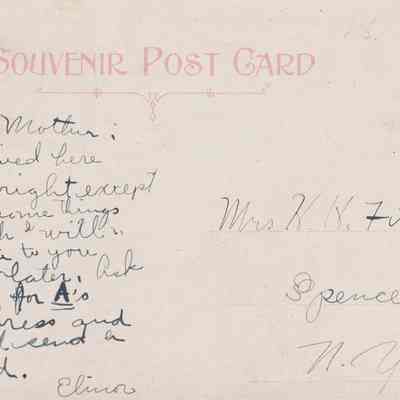 SOUVENIR POST CARD
Mother:
ived here
right except
some things
h I will
e to you
later. Ask
for A's
ress and
d send a
d.
Elinor
Mrs K. K. Fi
Spence
N. Y